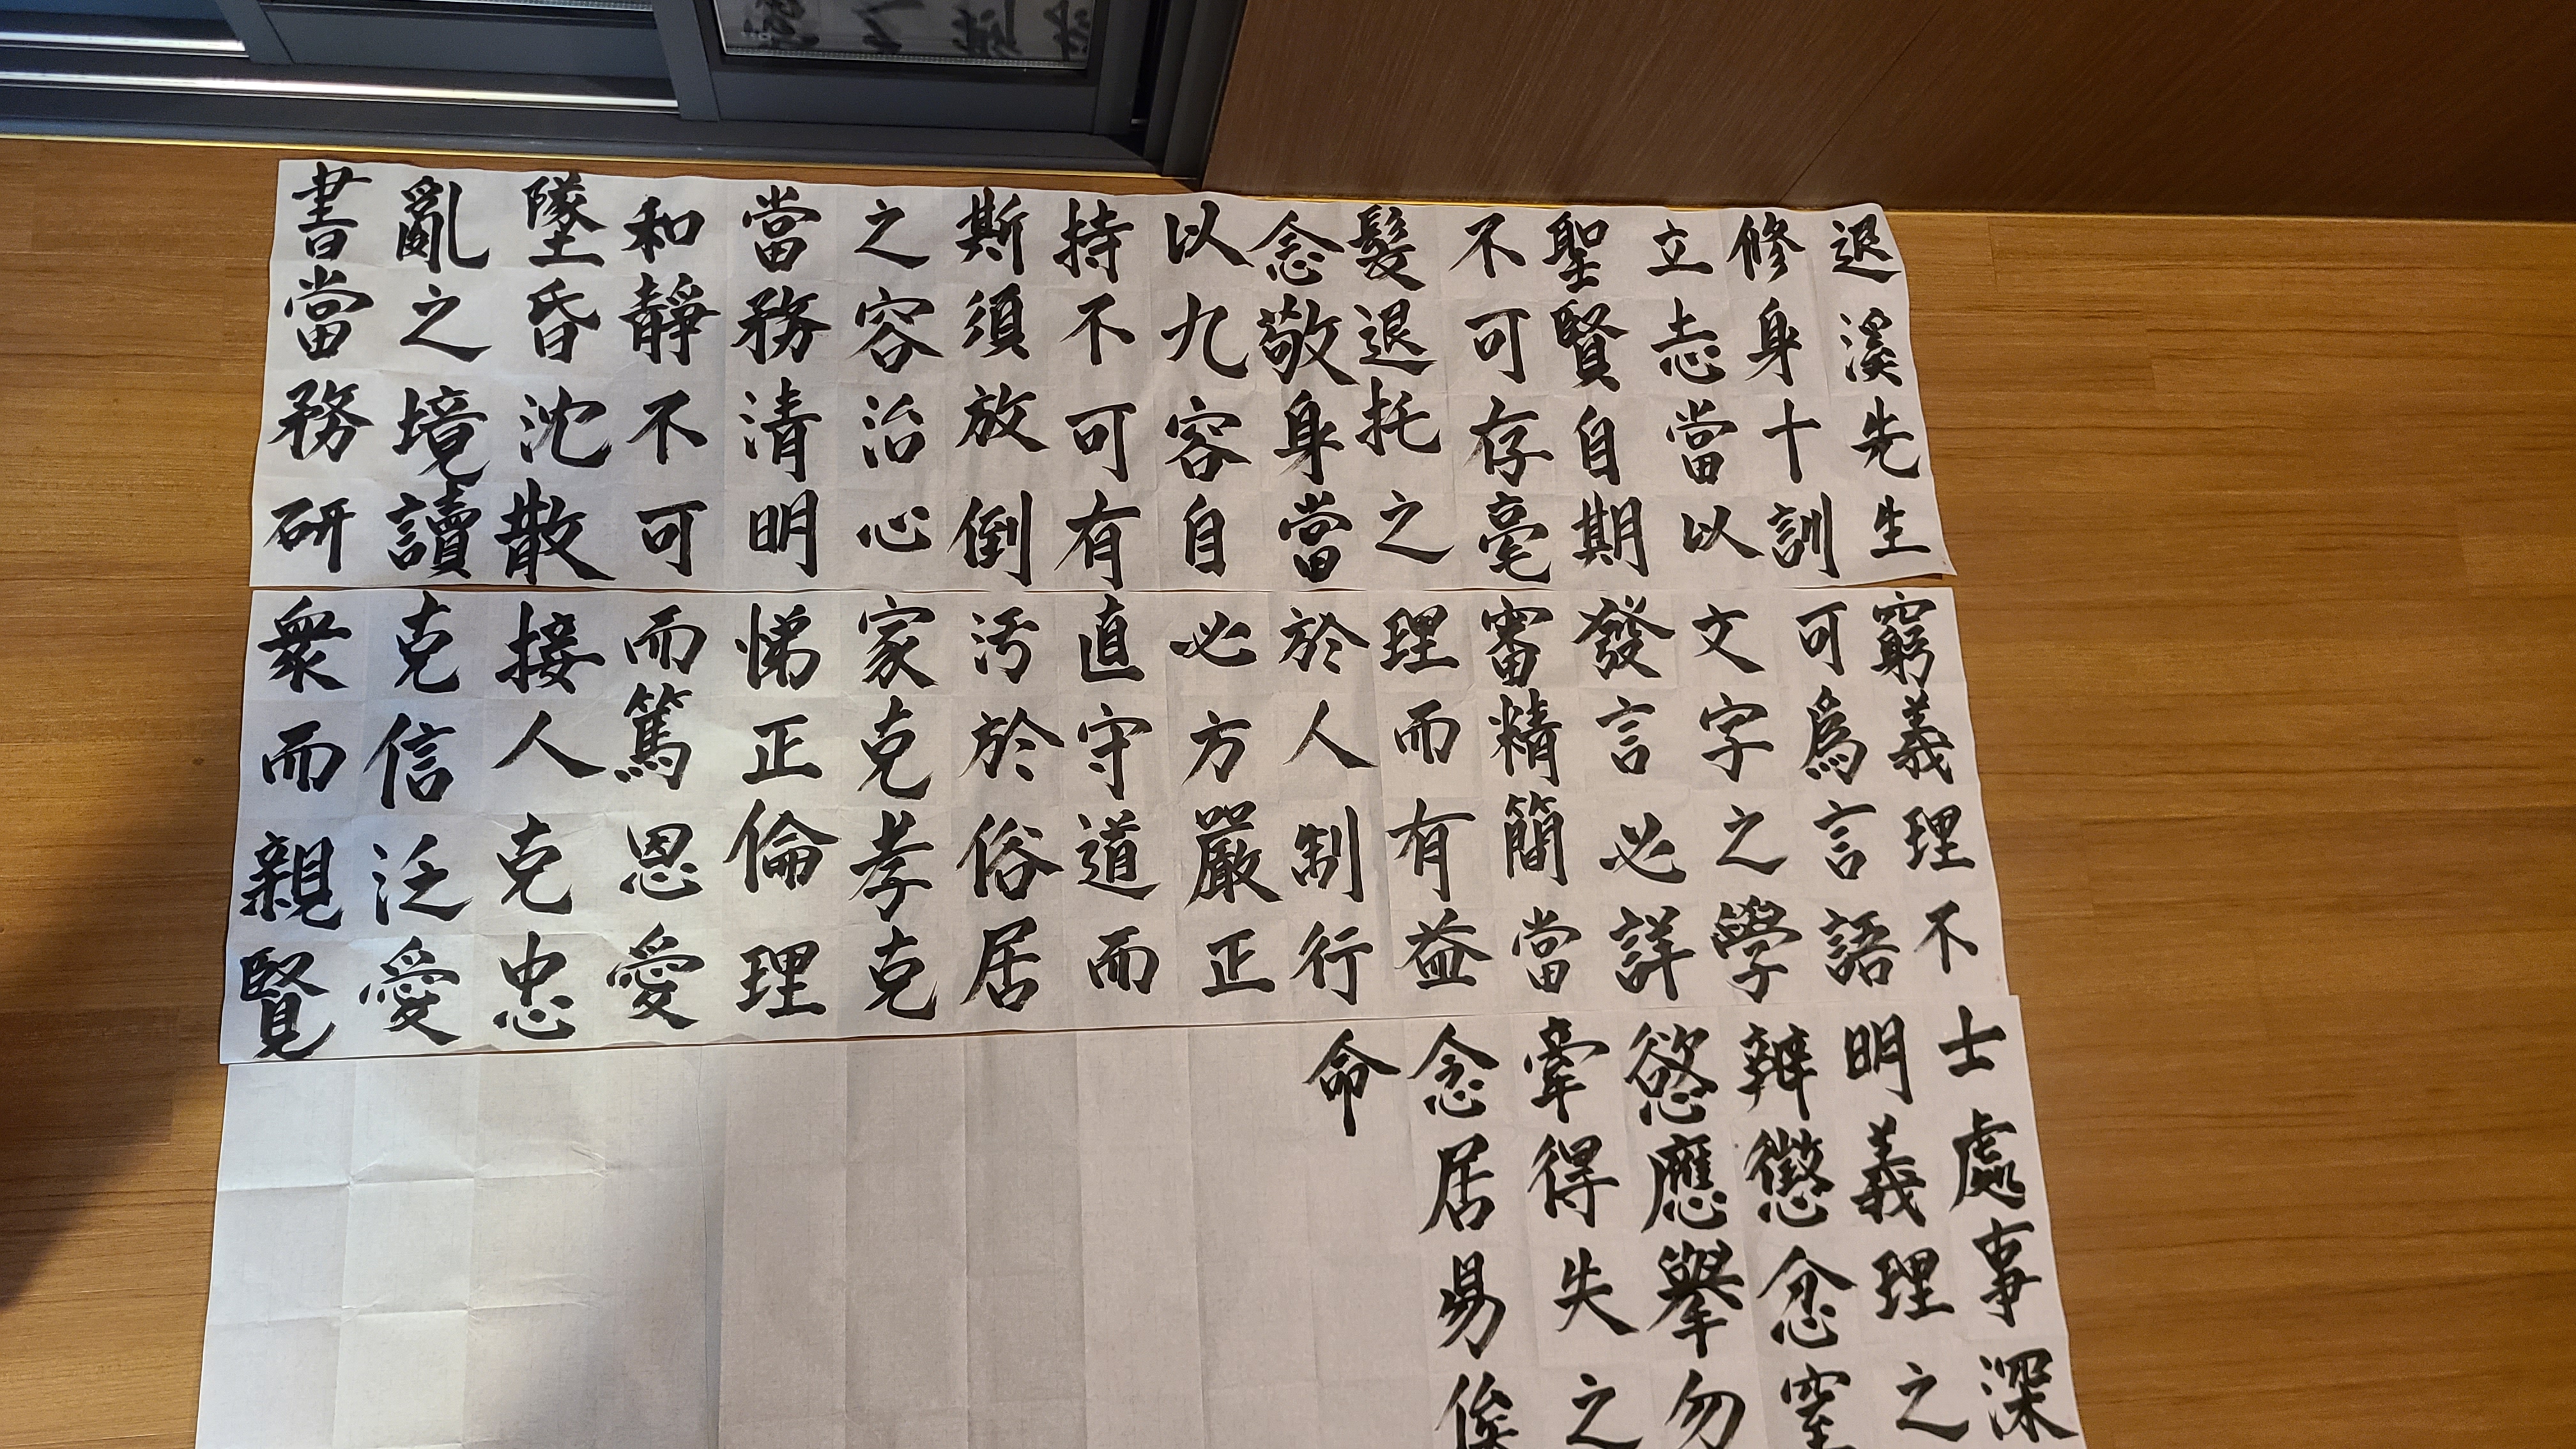 退溪先生
修身十訓
立志當以
聖賢自期
不可存毫
髮退托之
念敬身當
以九容自
持不可有
斯須放倒
之容治心
當務清明
和靜不可
墜昏沈散
亂之境讀
書當務研
窮義理不
可爲言語
文字之學
發言必詳
審精簡當
理而有益
於人制行
必方嚴正
直守道而
汚於俗居
家克孝克
悌正倫理
而篤恩愛
接人克忠
克信泛愛
衆而親賢
士處事深
明義理之
辨懲忿窒
慾應擧勿
牽得失之
念居易俟
命